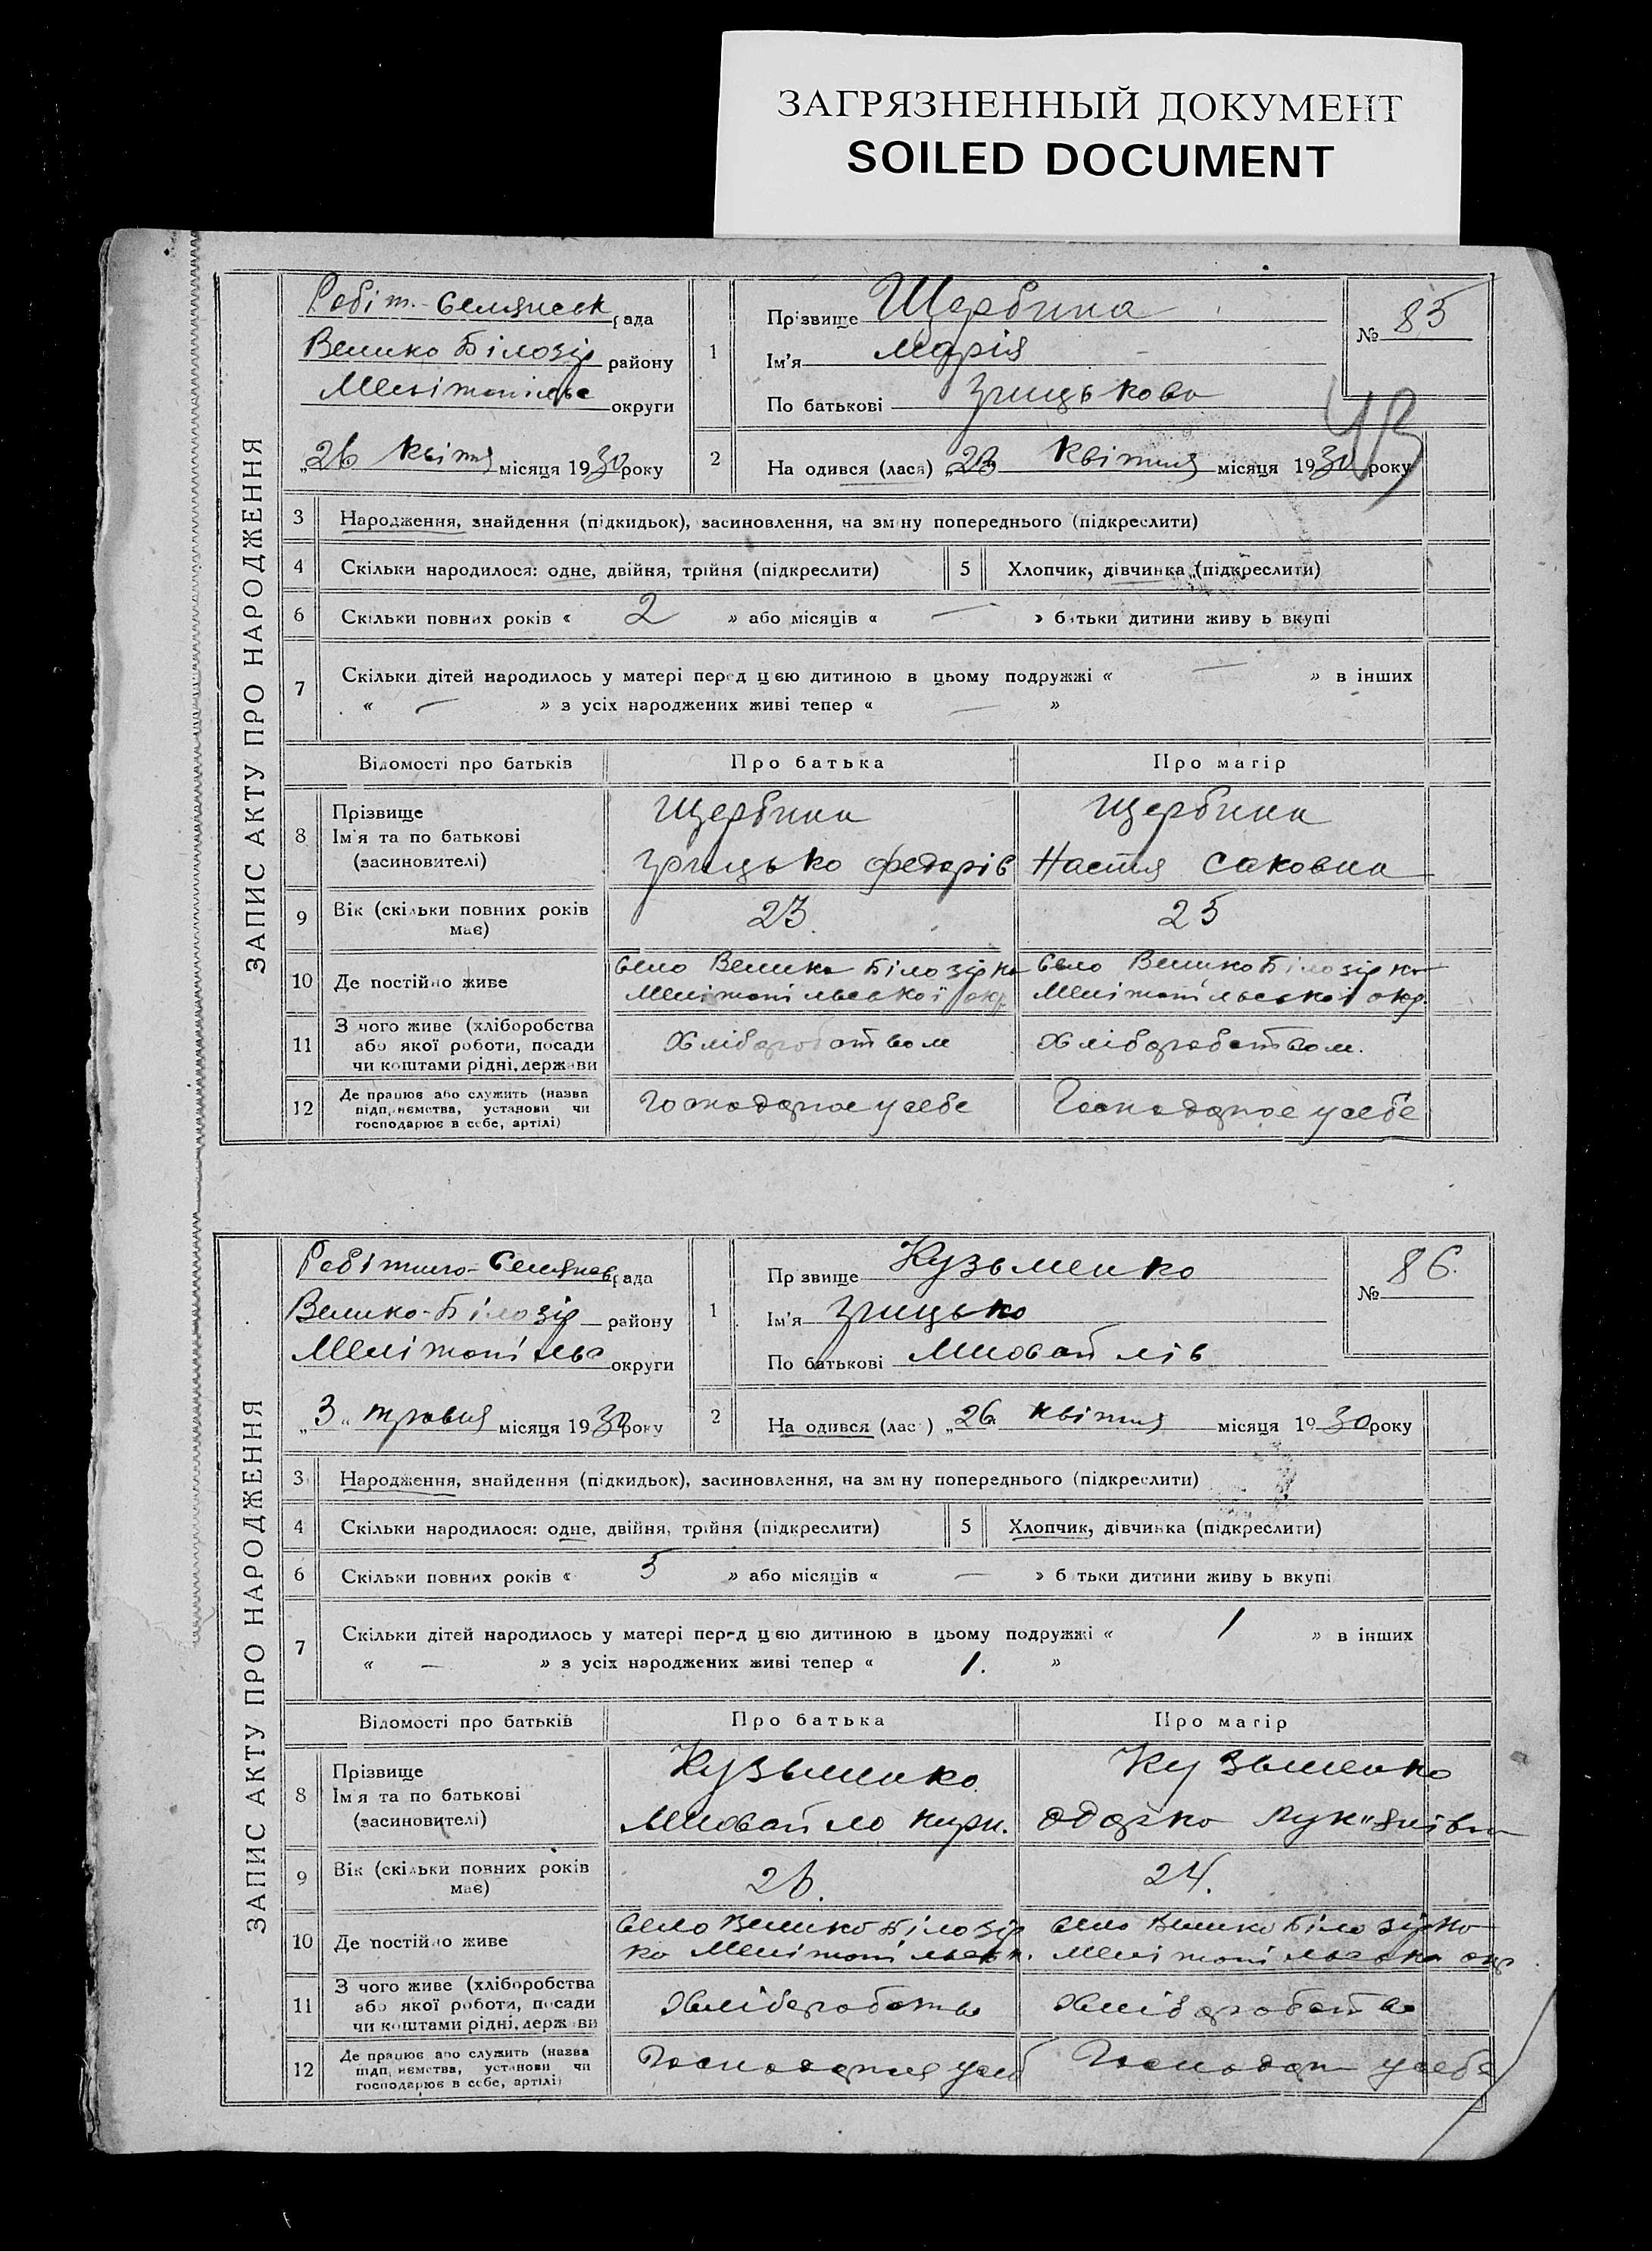 ЗАГРЯЗНЕННЫЙ ДОКУМЕНТ
SOILED DOCUMENT
ЗАПИС АКТУ ПРО НАРОДЖЕННЯ
Робіт.-Селянськ рада
Велико Білозір району
Мелітопільс округи
„26 квітня місяця 1930 року
1
Прізвище Щербина
Ім'я Марія
По батькові Грицькова
№ 85
49
2
На одився (лася) „23 квітня місяця 1930 року
3 Народження, знайдення (підкидьок), засиновлення, на зм ну попереднього (підкреслити)
4 Скільки народилося: одне, двійня, трійня (підкреслити) 5 Хлопчик, дівчинка (підкреслити)
6 Скільки повних років « 2 » або місяців « — » б тьки дитини живу ь вкупі
7 Скільки дітей народилось у матері перед цією дитиною в цьому подружжі « — » в інших
« — » з усіх народжених живі тепер « — »
Відомості про батьків Про батька Про матір
8 Прізвище Щербина Щербина
Ім'я та по батькові
(засиновителі) Грицько Федорів Настя Саковна
9 Вік (скільки повних років має) 23. 25
10 Де постійно живе Село Велика Білозірка Село Велико Білозірка
Мелітопільської окр. Мелітопільської окр.
11 З чого живе (хліборобства
або якої роботи, посади Хліборобством Хліборобством.
чи коштами рідні, держави
12 Де працює або служить (назва
підприємства, установи чи Господарює у себе Господарює у себе
господарює в себе, артілі)
ЗАПИС АКТУ ПРО НАРОДЖЕННЯ
Робітничо-Селянсь рада
Велико-Білозір району
Мелітопільс округи
„3„ травня місяця 1930 року
1
Пр звище Кузьменко
Ім'я Грицько
По батькові Михайлів
№ 86.
2
На одився (лас ) „26 квітня місяця 1930 року
3 Народження, знайдення (підкидьок), засиновлення, на зм ну попереднього (підкреслити)
4 Скільки народилося: одне, двійня, трійня (підкреслити) 5 Хлопчик, дівчинка (підкреслити)
6 Скільки повних років « 5 » або місяців « — » б тьки дитини живу ь вкупі
7 Скільки дітей народилось у матері перед цією дитиною в цьому подружжі « 1 » в інших
« — » з усіх народжених живі тепер « 1. »
Відомості про батьків Про батька Про матір
8 Прізвище Кузьменко Кузьменко
Ім'я та по батькові
(засиновителі) Михайло Кири. Одарка Лук"янівна
9 Вік (скільки повних років має) 26. 24.
10 Де постійно живе Село Велико Білозір Село Велико Білозірка
ка Мелітопільськ. Мелітопільська окр
11 З чого живе (хліборобства
або якої роботи, посади Хліборобство Хліборобство
чи коштами рідні, держави
12 Де працює або служить (назва
підприємства, установи чи Господарює у себ Господар у себе
господарює в себе, артілі)